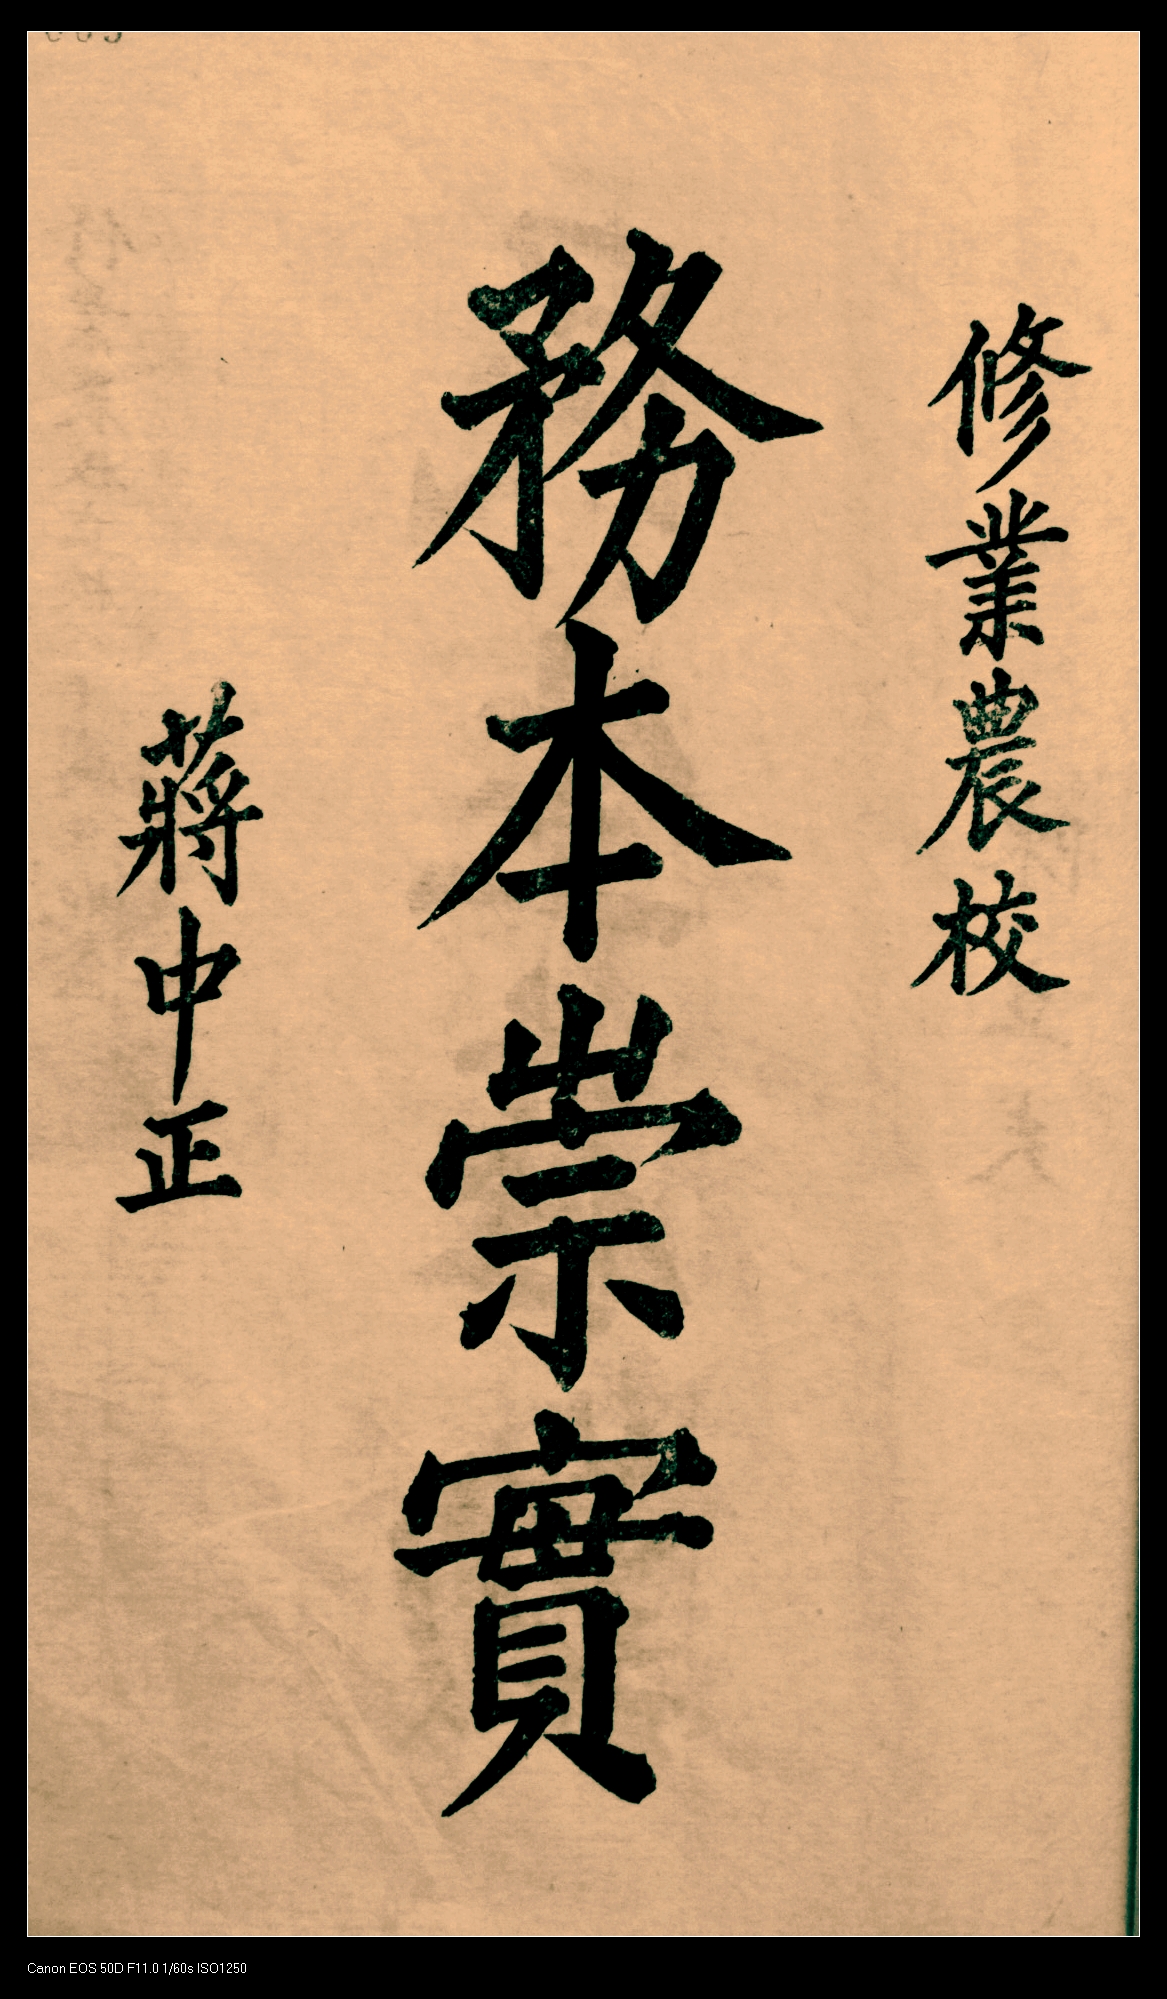 修業農校
務本崇實
蔣中正
Canon EOS 50D F11.0 1/60s ISO1250